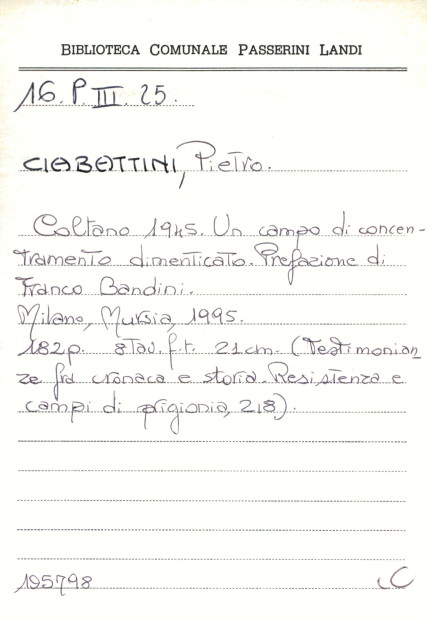 BIBLIOTECA COMUNALE PASSERINI LANDI
16. P. III. 25.
CIABATTINI, Pietro.
Coltano 1945. Un campo di concen-
tramento dimenticato. Prefazione di
Franco Bandini.
Milano, Mursia, 1995.
182 p. 8 tav. f.t. 21 cm. (Testimonian
ze fra cronaca e storia. Resistenza e
campi di prigionia, 218).
195798
C